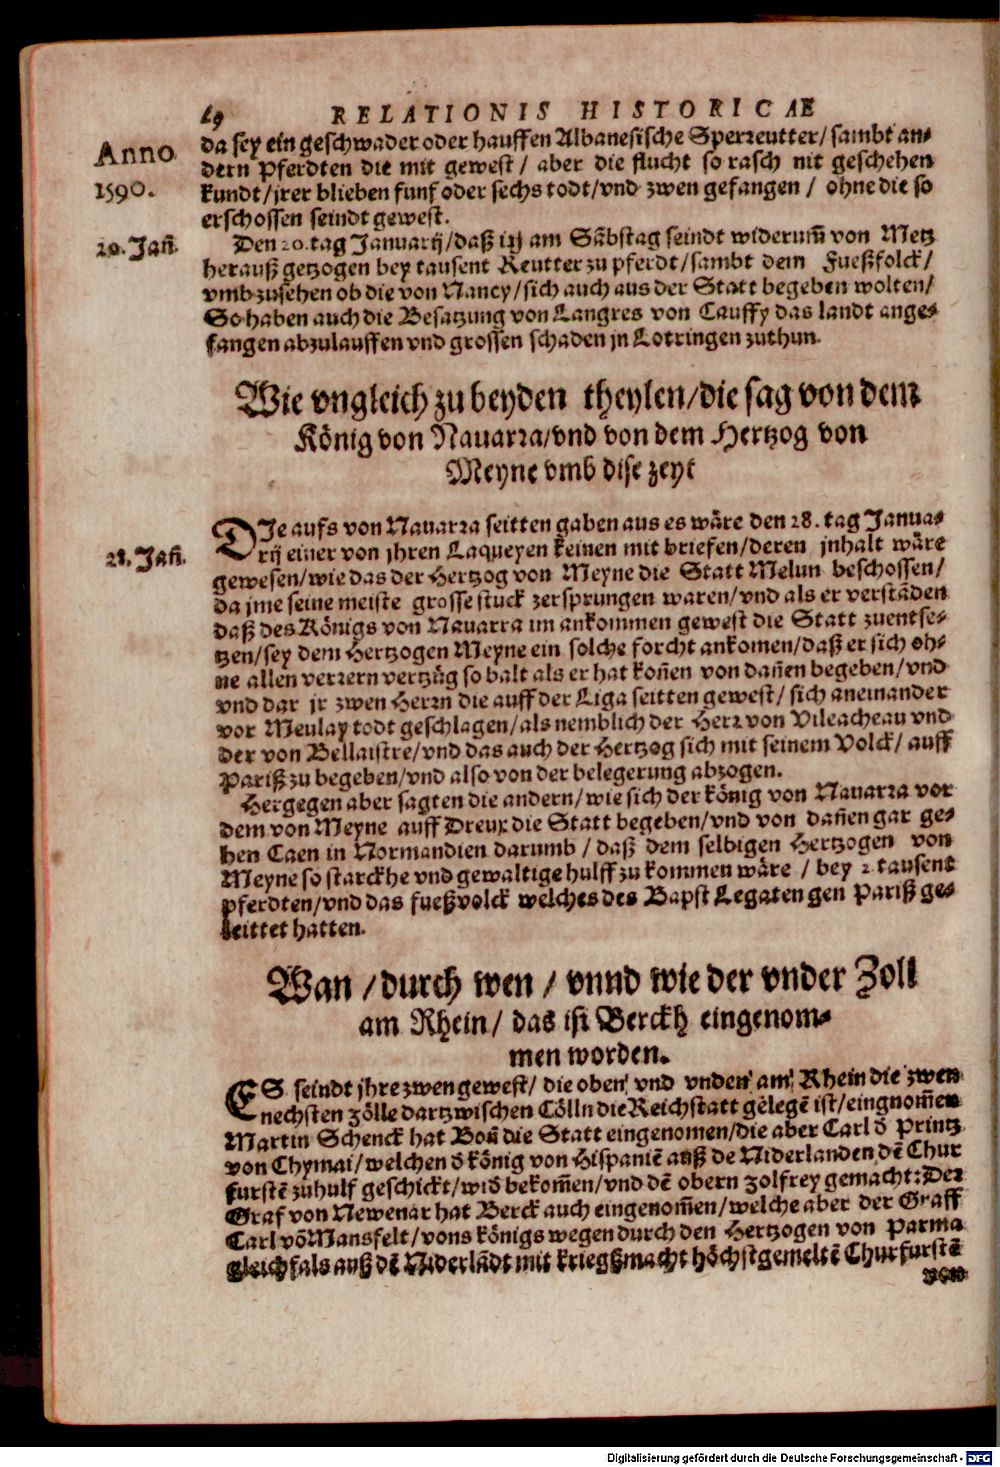 RELATIONIS HISTORICAE
Anno
1590.
da sey ein geschwader oder hauffen Albanesische Sperreutter/ sambt an-
dern Pferdten die mit gewest / aber die flucht so rasch nit geschehen
kundt/ jrer blieben funf oder sechs todt/ vnd zwen gefangen / ohne die so
erschossen seindt gewest.
20. Jañ.
Den 20. tag Januarij/ daß am Sābstag seindt widerum̃ von Metz
herauß getzogen bey tausent Reutter zu pferdt/ sambt dem Fueßfolck/
vmb zusehen ob die von Nancy/ sich auch aus der Statt begeben wolten/
So haben auch die Besatzung von Langres von Cauffy das landt ange-
fangen abzulauffen vnd grossen schaden jn Lotringen zuthun.
Wie vngleich zu beyden theylen/ die sag von dem
König von Nauarra/ vnd von dem Hertzog von
Meyne vmb dise zeyt
28. Jañ.
DJe aufs von Nauarra seitten gaben aus es wäre den 28. tag Janua-
rij einer von jhren Laqueyen keinen mit briefen/ deren jnhalt wäre
gewesen/ wie das der Hertzog von Meyne die Statt Melun beschossen/
da jme seine meiste grosse stuck zersprungen waren/ vnd als er verstādem
daß des Königs von Nauarra im ankommen gewest die Statt zuentse-
tzen/ sey dem Hertzogen Meyne ein solche forcht ankomen/ daß er sich oh-
ne allen verrern vertzüg so balt als er hat koñen von dañen begeben/ vnd
vnd dar jr zwen Herrn die auff der Liga seitten gewest/ sich aneinander
vor Meulay todt geschlagen/ als nemblich der Herr von Vileacheau vnd
der von Bellaistre/ vnd das auch der Hertzog sich mit seinem Volck/ auff
Pariß zu begeben/ vnd also von der belegerung abzogen.
Hergegen aber sagten die andern/ wie sich der könig von Nauarra vor
dem von Meyne auff Dreux die Statt begeben/ vnd von dañen gar ge-
hen Caen in Normandien darumb / daß dem selbigen Hertzogen von
Meyne so starckhe vnd gewaltige hulff zu kommen wäre / bey 2. tausent
pferdten/ vnd das fueßvolck welches des Bapst Legaten gen Pariß ge-
leittet hatten.
Wan / durch wen / vnnd wie der vnder Zoll
am Rhein/ das ist Berckh eingenom-
men worden.
ES seindt jhre zwen gewest/ die oben vnd vnden am Rhein die zwen
nechsten zölle dartzwischen Cölln die Reichstatt gelegē ist/ eingnom̄en
Martin Schenck hat Boñ die Statt eingenomen/ die aber Carl ð Printz
von Chymai/ welchen ð könig von Hispaniē auß de Niderlanden dē Chur
furstē zuhulf geschickt/ wið bekom̄en/ vnd dē obern zolfrey gemacht: Der
Graf von Newenar hat Berck auch eingenom̄en/ welche aber der Graff
Carl vō Mansfelt/ vons königs wegen durch den Hertzogen von Parma
gleichfals auß dē Niderlādt mit kriegßmacht höchstgemeltē Churfurstē
von
Digitalisierung gefördert durch die Deutsche Forschungsgemeinschaft - DFG